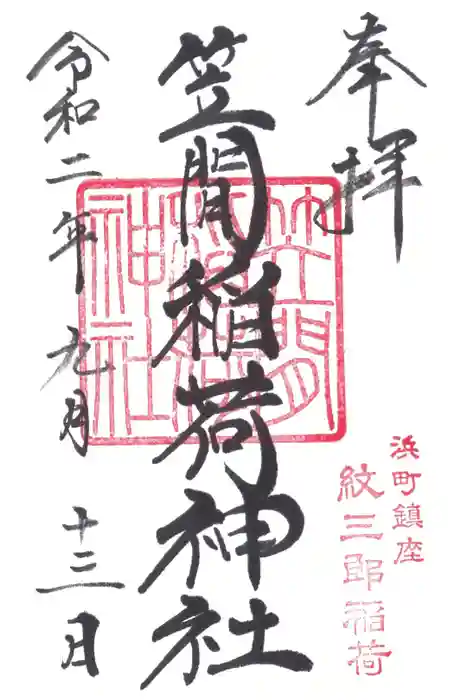 奉拝
浜町鎮座
紋三郎稲荷
笠間稲荷神社
笠間
稲荷
神社
令和二年九月十三日